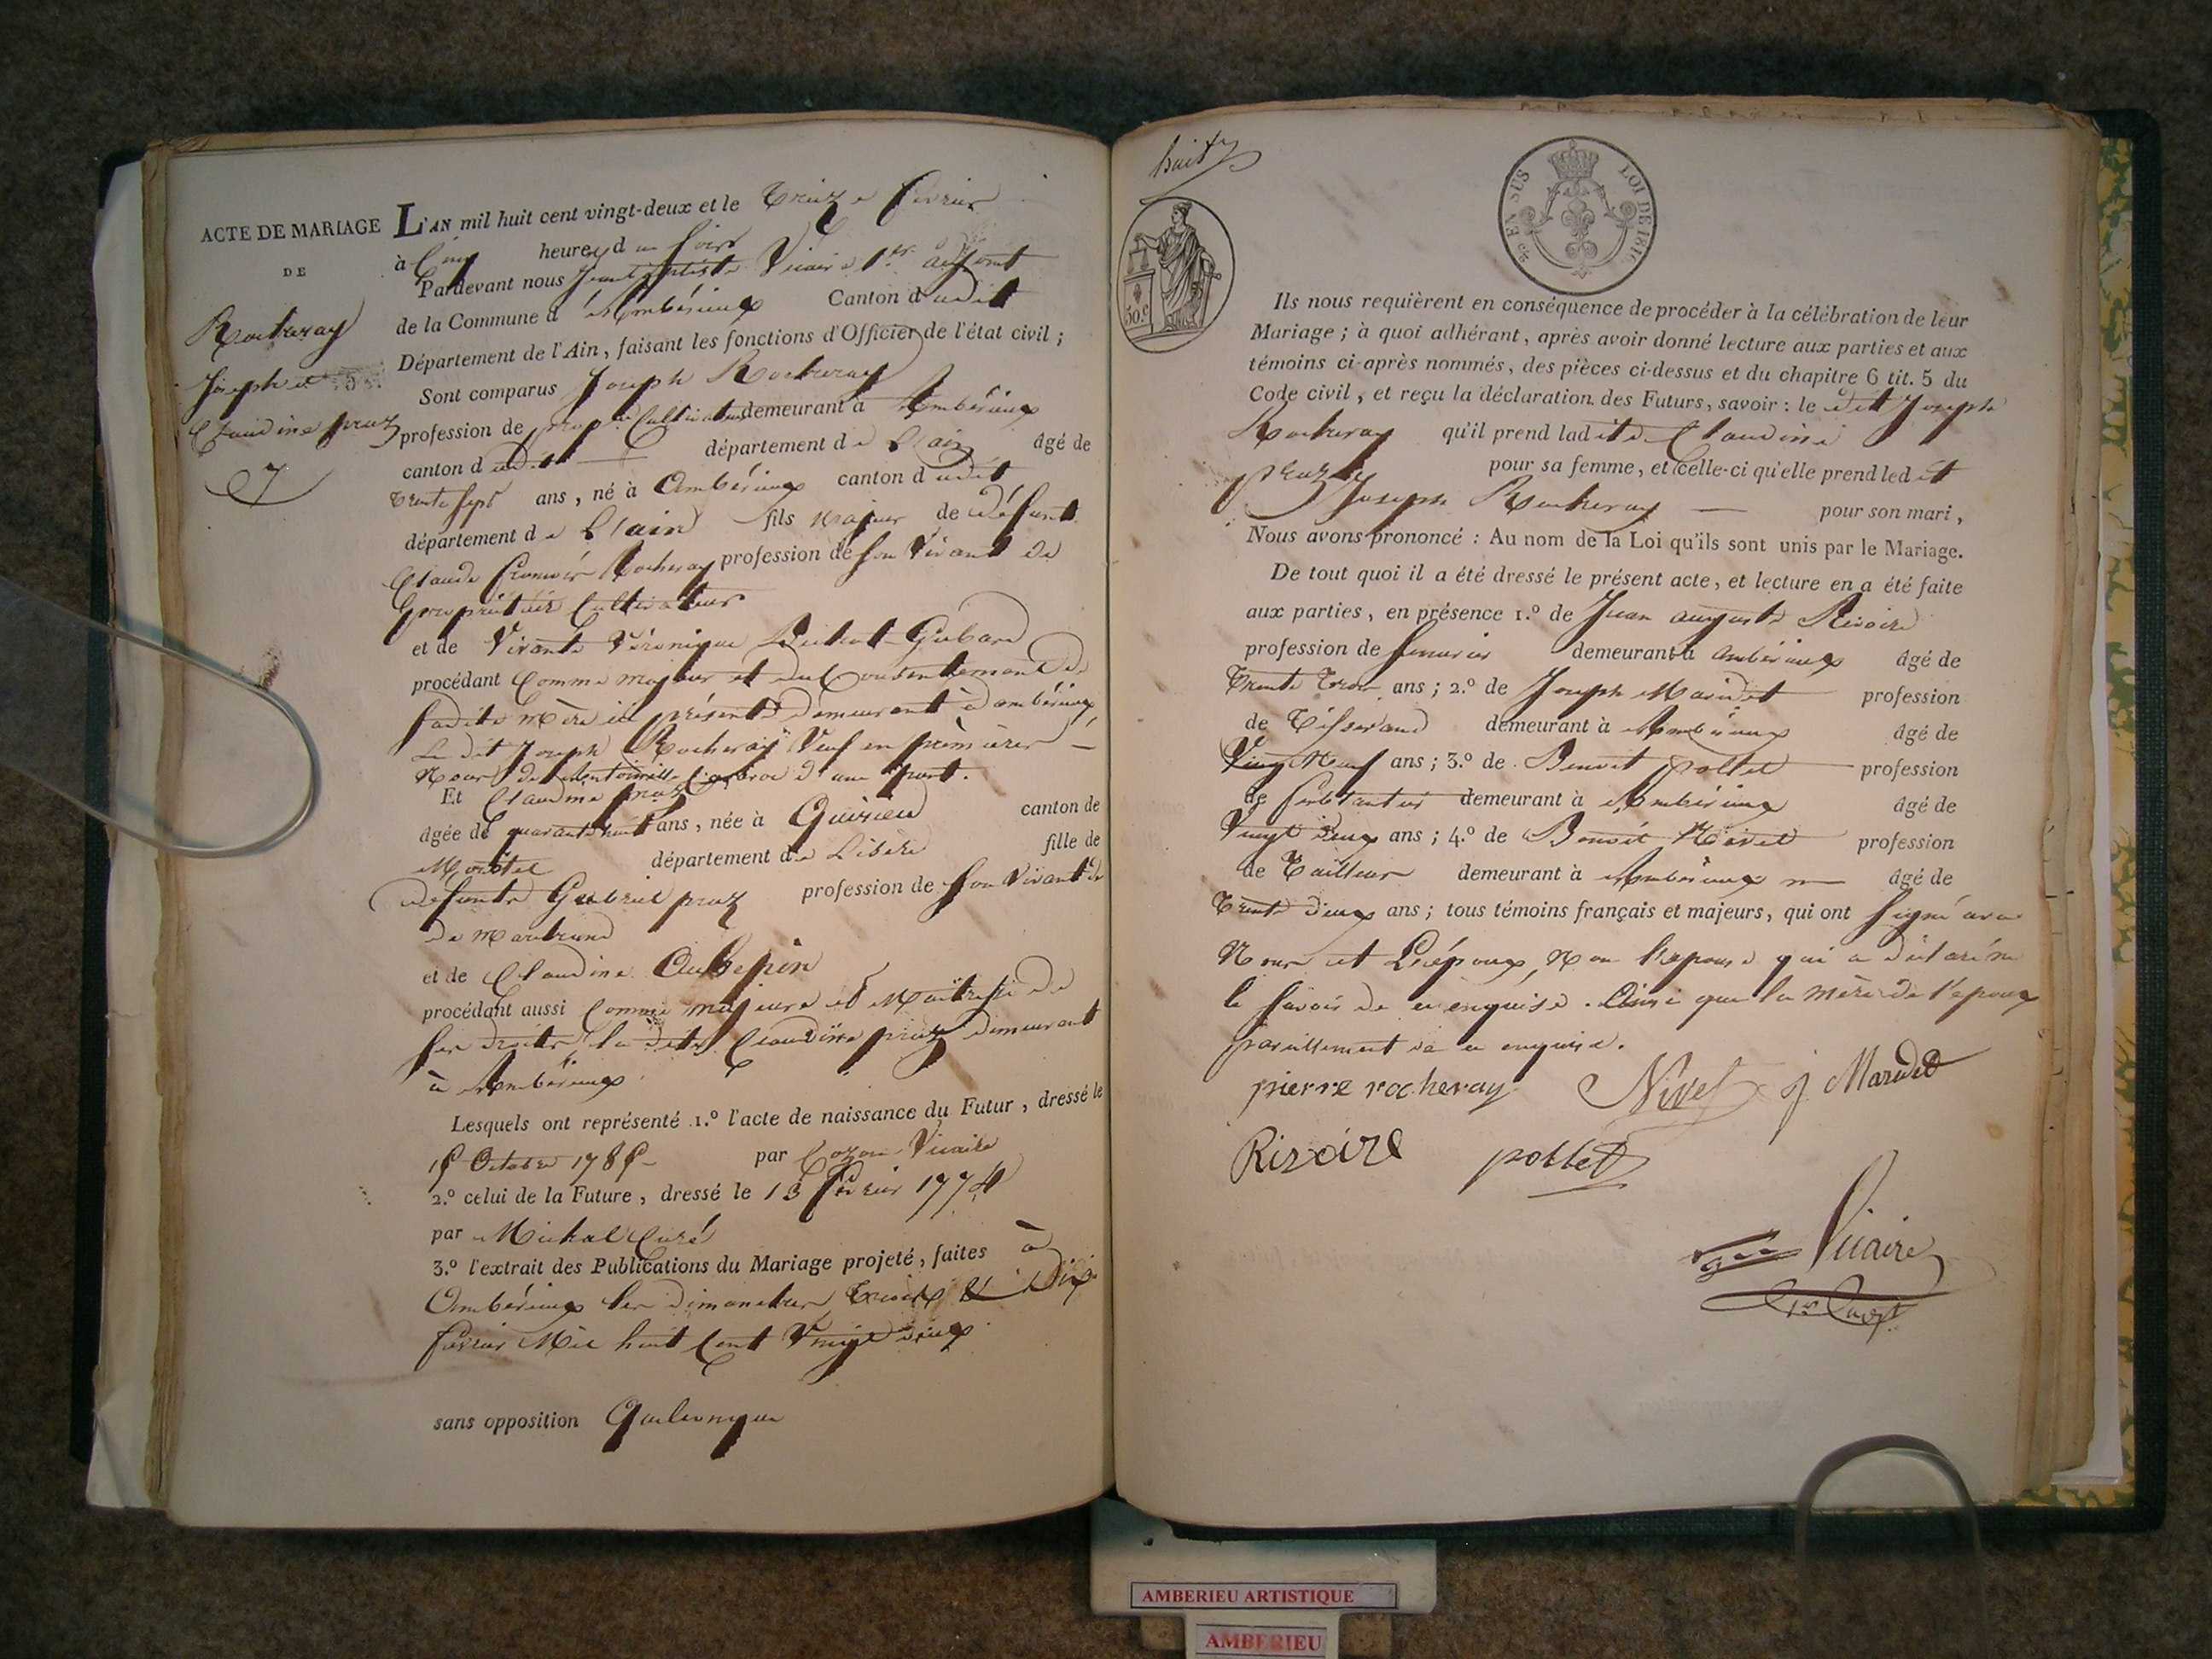 ACTE DE MARIAGE
DE
Rocheray
Joseph et
Claudine pruz
7
L'AN mil huit cent vingt-deux et le Treize février
à Cinq heures du soir
Pardevant nous Jean Baptiste Vicaire 1er adjoint
de la Commune d'Ambérieux Canton dudit
Département de l'Ain, faisant les fonctions d'Officier de l'état civil ;
Sont comparus Joseph Rocheray
profession de prop.re Cultivateur demeurant à Ambérieux
canton dudit département de l'ain âgé de
trente sept ans, né à Ambérieux canton dudit
département de l'ain fils majeur de défunt
Claude Rocheray profession de son vivant de
propriétaire Cultivateur
et de Vivante Véronique Gubare
procédant comme majeur et du Consentement de
sadite mère ici présente demeurant à ambérieux
Le dit Joseph Rocheray Veuf en premières
Noces de d'une part.
Et Claudine pruz
âgée de quarante huit ans, née à Quirieu canton de
Morestel département de L'isère fille de
défunts Gabriel pruz profession de son vivant de
de marchand
et de Claudine Aubepin
procédant aussi comme majeure et Maitresse de
ses droits la dite Claudine pruz demeurant
à Ambérieux
Lesquels ont représenté 1.º l'acte de naissance du Futur, dressé le
Octobre par Vicaire
2.º celui de la Future, dressé le 13 février 1774
par Michal Curé
3.º l'extrait des Publications du Mariage projeté, faites à
Ambérieux les dimanches trois & Dix
février Mil huit Cent Vingt deux
sans opposition Quelconque
huit
EN SUS
LOI DE 1816
50.c
Ils nous requièrent en conséquence de procéder à la célébration de leur
Mariage ; à quoi adhérant, après avoir donné lecture aux parties et aux
témoins ci-après nommés, des pièces ci-dessus et du chapitre 6 tit. 5 du
Code civil, et reçu la déclaration des Futurs, savoir : le dit Joseph
Rocheray qu'il prend ladite Claudine
pruz pour sa femme, et celle-ci qu'elle prend ledit
Joseph Rocheray pour son mari,
Nous avons prononcé : Au nom de la Loi qu'ils sont unis par le Mariage.
De tout quoi il a été dressé le présent acte, et lecture en a été faite
aux parties, en présence 1.º de Jean auguste Rivoire
profession de demeurant à ambérieux âgé de
Trente Trois ans ; 2.º de Joseph Maridet profession
de Tisserand demeurant à Ambérieux âgé de
Vingt Neuf ans ; 3.º de Benoit pollet profession
de ferblantier demeurant à Ambérieux âgé de
Vingt deux ans ; 4.º de Benoit Nivet profession
de Tailleur demeurant à Ambérieux âgé de
Trente deux ans ; tous témoins français et majeurs, qui ont signé avec
Nous et L'époux, Non l'epouse qui a déclaré ne
le savoir de ce enquise. Ainsi que la mère de l'epoux
pareillement de ce enquise.
pierre rocheray Nivet j Maridet
Rivoire pollet
Vicaire
1er adjt
AMBERIEU ARTISTIQUE
AMBERIEU